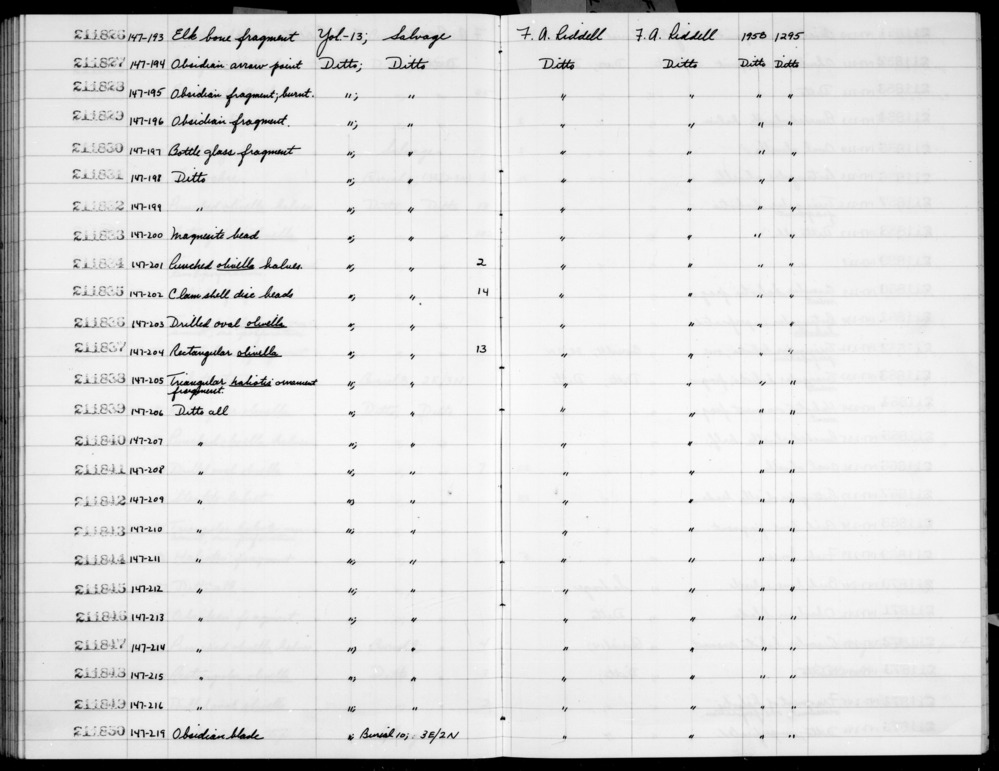 211826 147-193 Elk bone fragment Yol-13; Salvage F. A. Riddell F. A. Riddell 1950 1295
211827 147-194 Obsidian arrow point Ditto; Ditto Ditto Ditto Ditto Ditto
211828 147-195 Obsidian fragment; burnt. "; " " " " "
211829 147-196 Obsidian fragment. "; " " " " "
211830 147-197 Bottle glass fragment "; " " " " "
211831 147-198 Ditto "; " " " " "
211832 147-199 " "; " " " " "
211833 147-200 Magnesite bead "; " " " " "
211834 147-201 Punched olivella halves. "; " 2 " " " "
211835 147-202 Clam shell disc beads "; " 14 " " " "
211836 147-203 Drilled oval olivella "; " " " " "
211837 147-204 Rectangular olivella "; " 13 " " " "
211838 147-205 Triangular haliotis ornament "; " " " " "
fragment.
211839 147-206 Ditto all "; " " " " "
211840 147-207 " "; " " " " "
211841 147-208 " "; " " " " "
211842 147-209 " "; " " " " "
211843 147-210 " "; " " " " "
211844 147-211 " "; " " " " "
211845 147-212 " "; " " " " "
211846 147-213 " "; " " " " "
211847 147-214 " "; " " " " "
211848 147-215 " "; " " " " "
211849 147-216 " "; " " " " "
211850 147-219 Obsidian blade "; Burial 10; 3E/2N " " " "